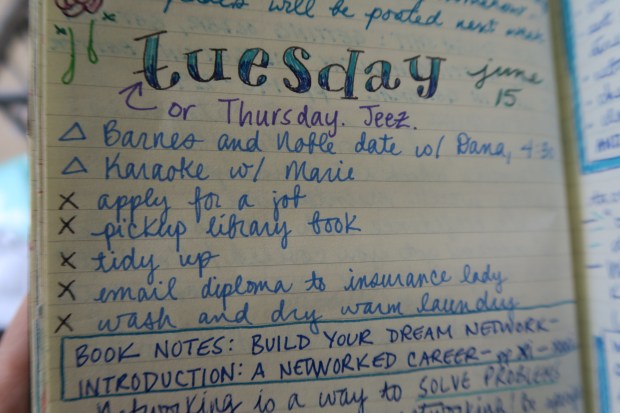 will be posted next
tuesday june
15
or Thursday. Jeez.
Barnes and Noble date w/ Dana, 4:30
Karaoke w/ Marie
x apply for a job
x pickup library book
x tidy up
x email diploma to insurance lady
x wash and dry warm laundry
BOOK NOTES: BUILD YOUR DREAM NETWORK-
INTRODUCTION: A NETWORKED CAREER- pg xi -
Networking is a way to SOLVE PROBLEMS